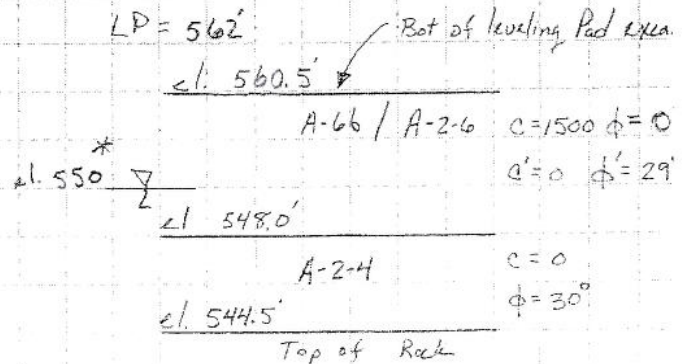 LP = 562'
Bot of leveling Pad exca.
el. 560.5'
A-6b / A-2-6 c=1500 ϕ=0
el. 550* c'=0 ϕ'=29°
el 548.0'
A-2-4 c=0
ϕ=30°
el. 544.5'
Top of Rock